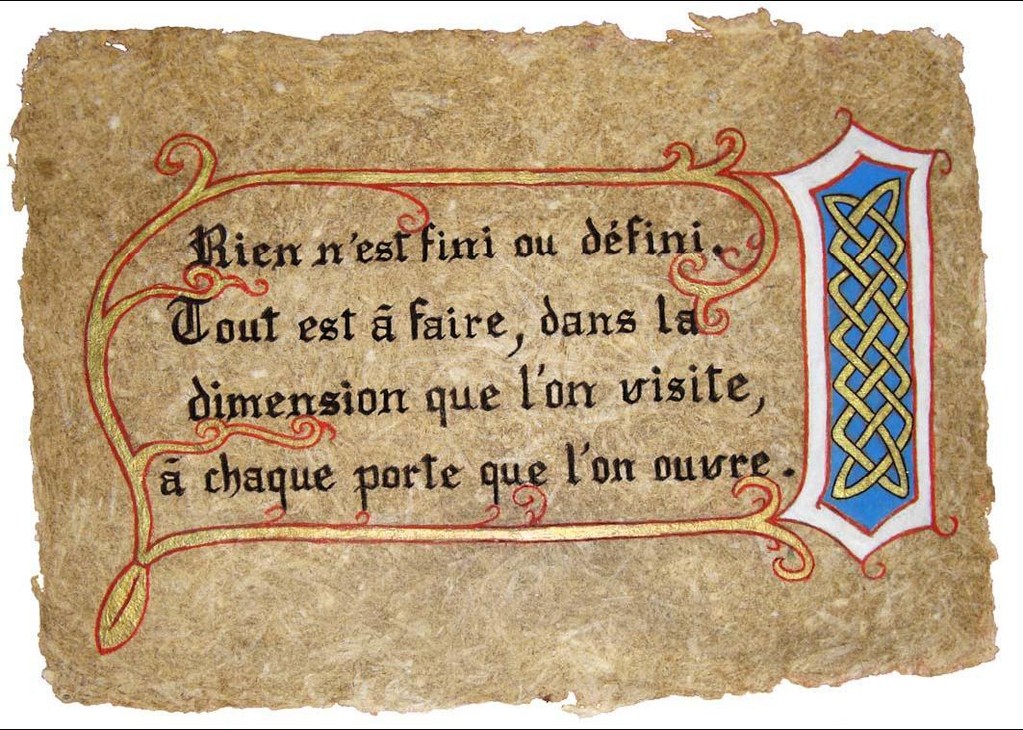 Rien n'est fini ou défini.
Tout est ā faire, dans la
dimension que l'on visite,
ā chaque porte que l'on ouvre.